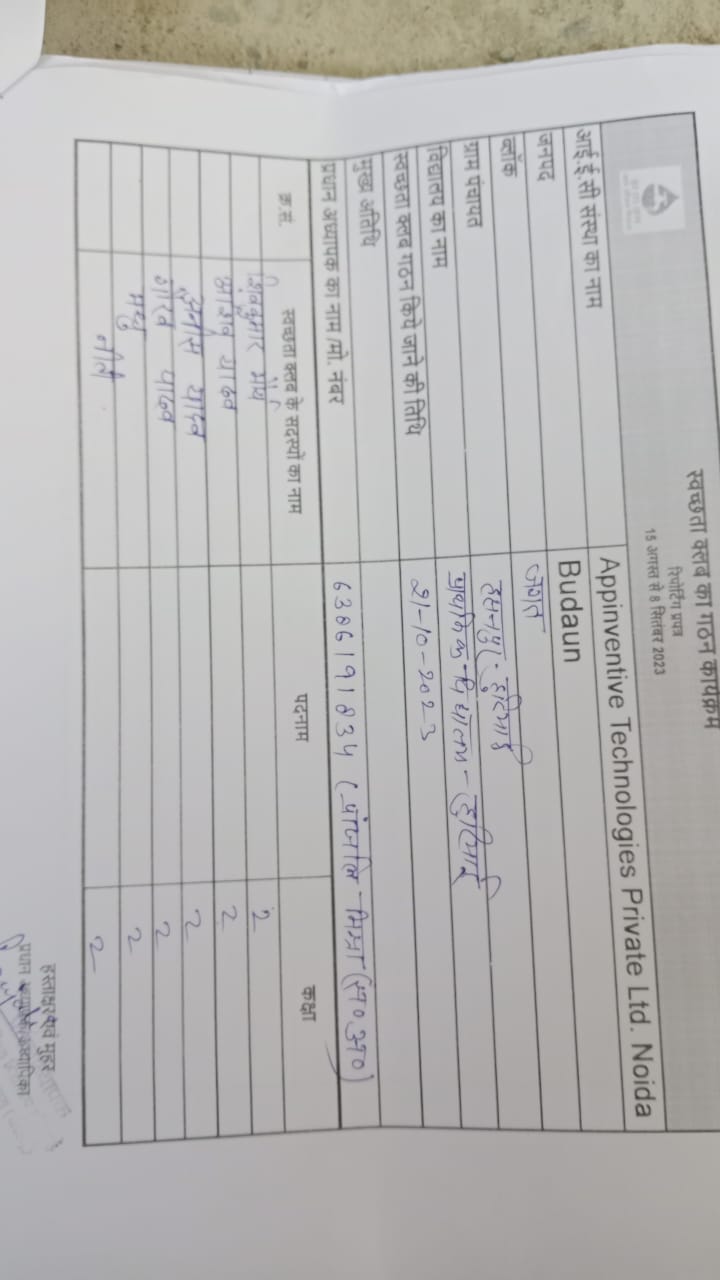 स्वच्छता क्लब का गठन कार्यक्रम
रिपोर्टिंग प्रपत्र
15 अगस्त से 8 सितंबर 2023
आई.ई.सी संस्था का नाम Appinventive Technologies Private Ltd. Noida
जनपद Budaun
ब्लॉक जगत
ग्राम पंचायत हसनपुर
विद्यालय का नाम
स्वच्छता क्लब गठन किये जाने की तिथि 21-10-2023
मुख्य अतिथि
प्रधान अध्यापक का नाम /मो. नंबर 6386191834 मिश्रा (स०अ०)
क्र.सं. स्वच्छता क्लब के सदस्यों का नाम पदनाम कक्षा
शिवकुमार 2
यादव 2
यादव 2
यादव 2
मधु 2
2
हस्ताक्षर एवं मुहर
प्रधान